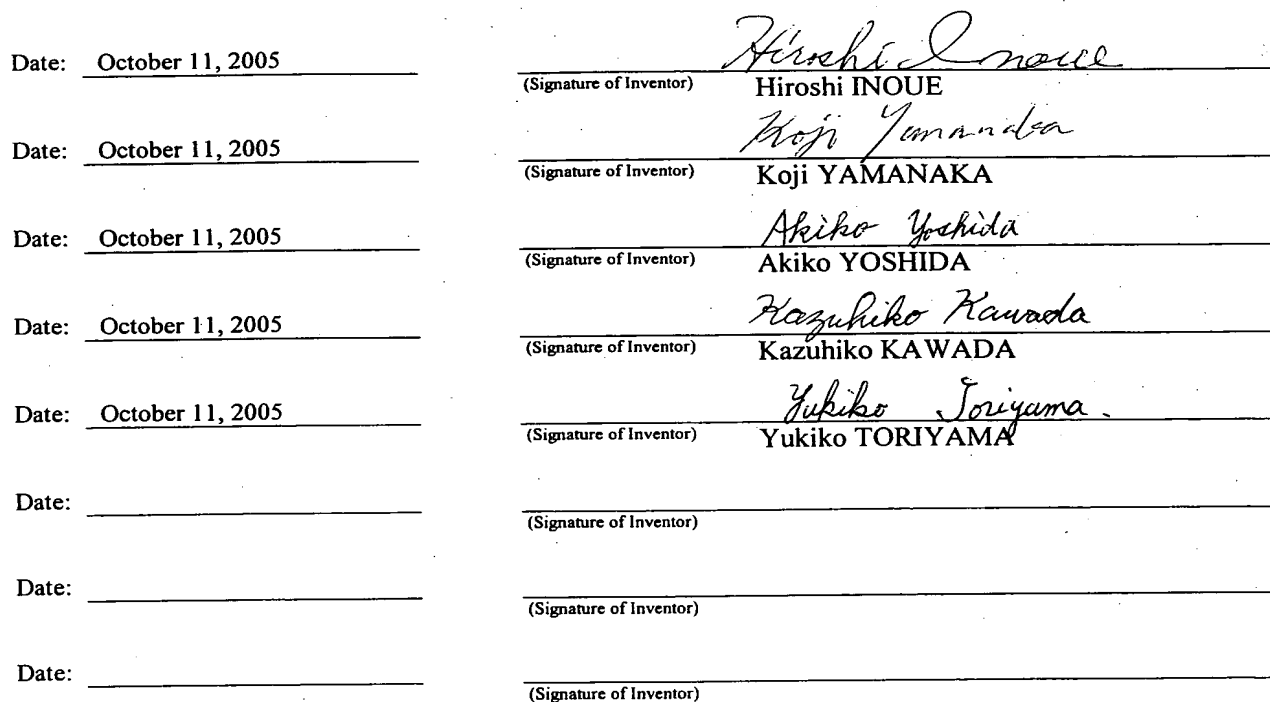 Date: October 11, 2005 Hiroshi Inoue
(Signature of Inventor) Hiroshi INOUE
Date: October 11, 2005 Koji Yamanaka
(Signature of Inventor) Koji YAMANAKA
Date: October 11, 2005 Akiko Yoshida
(Signature of Inventor) Akiko YOSHIDA
Date: October 11, 2005 Kazuhiko Kawada
(Signature of Inventor) Kazuhiko KAWADA
Date: October 11, 2005 Yukiko Toriyama.
(Signature of Inventor) Yukiko TORIYAMA
Date:
(Signature of Inventor)
Date:
(Signature of Inventor)
Date:
(Signature of Inventor)